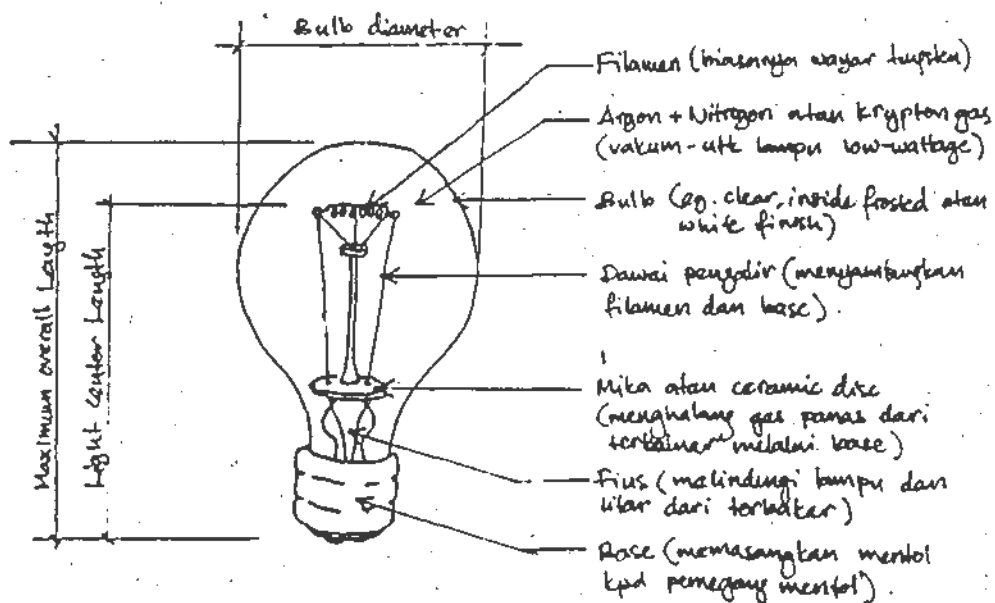 Bulb diameter
Maximum overall Length
Light center Length
Filamen (biasanya wayar tungsten)
Argon + Nitrogen atau krypton gas
(vakum - utk lampu low-wattage)
Bulb (eg. clear, inside frosted atau
white finish)
Dawai pengalir (menyambungkan
filamen dan base).
Mika atau ceramic disc
(menghalang gas panas dari
melalui base)
Fius (melindungi lampu dan
litar dari terbakar)
Base (memasangkan mentol
kpd pemegang mentol).